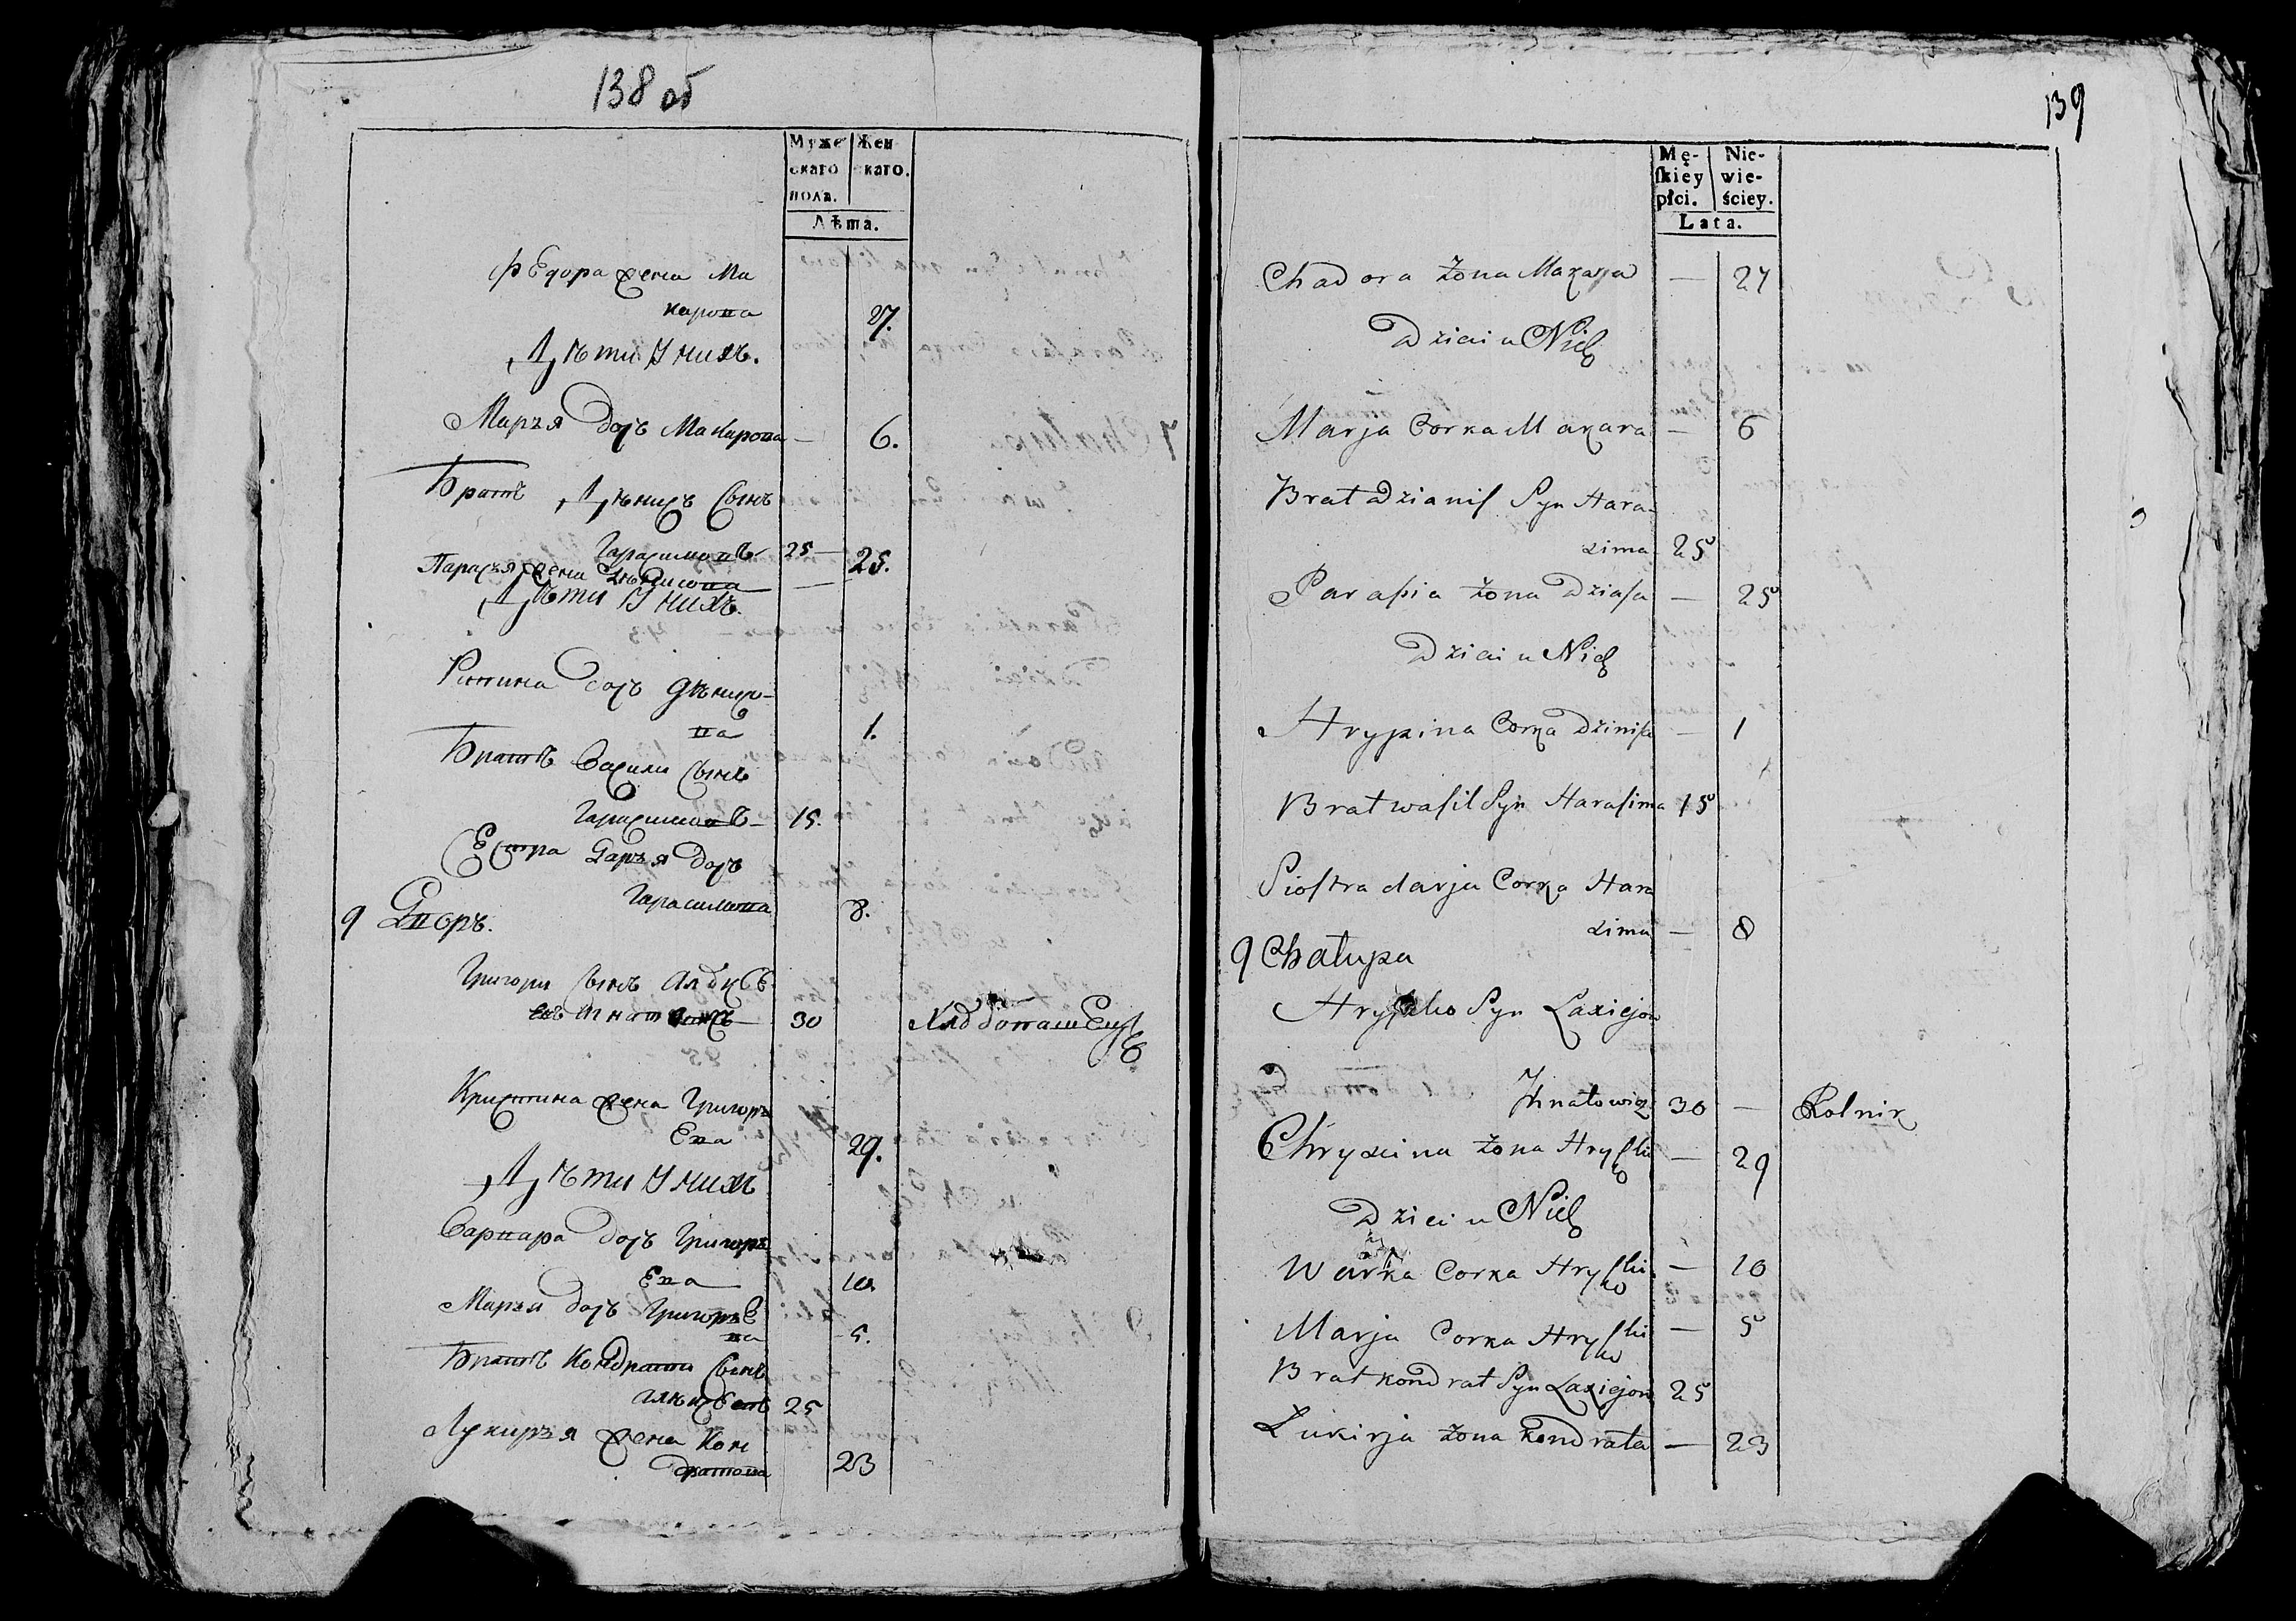 138 об
Муже Жен
скаго скаго.
пола.
Лѣта.
Федора жена Ма
карова 27.
Дѣти У нихъ.
Марья дочъ Макарова — 6.
Братъ Дѣнисъ Сынъ
Гарасимовъ 25 —
Парасья жена Дѣнисова — 25.
Дѣти У нихъ.
дочъ Дѣнисо-
ва 1.
Братъ Василий Сынъ
Гарасимовъ 15.
Сестра Дарья дочъ
Гарасимова 8.
9 Дворъ.
Григори Сынъ
30 Хлебопашецъ
Кристина жена Григорь
Ева 29.
Дѣти У нихъ
Варвара дочъ Григорь
Ева 10.
Марья дочъ Григорье
ва 5.
Братъ Кондрати Сынъ
25
Лукирья жена Кон
дратова 23
139
Mę- Nie-
ſkiey wie-
płci. ściey.
Lata.
Chadora żona Makara — 27
Dzieci u Nich
Marja Corka Makara — 6
Brat Dzianis Syn Hara-
sima 25
Parasia żona — 25
Dzieci u Nich
Hrypina Corka Dzinisa — 1
Brat wasil Syn Harasima 15
Siostra darja Corka Hara
sima — 8
9 Chałupa
Hryszko Syn Laxiejow
Ihnatowicz 30 — Rolnik
Chryscina żona Hryszki — 29
Dzieci u Nich
Warka Corka Hryszki — 10
Marja Corka Hryszki — 5
Brat kondrat Syn Laxiejow 25
Lukirja żona kondrata — 23